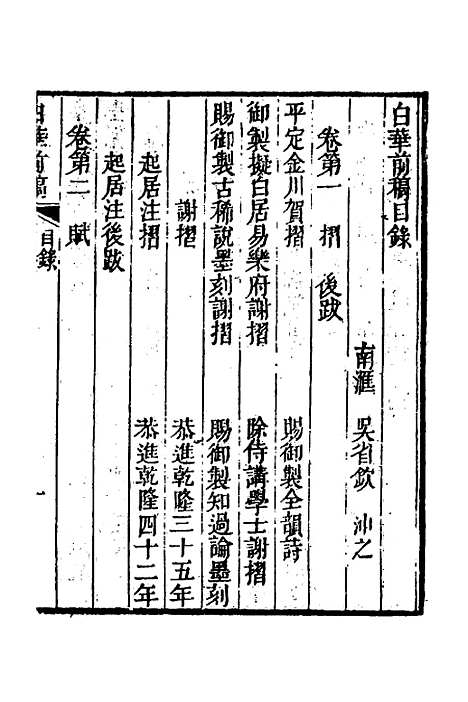 白華前稿目錄
南滙 吳省欽 沖之
卷第一 摺 後跋
平定金川賀摺 賜御製全韻詩
御製擬白居易樂府謝摺 除侍講學士謝摺
賜御製古稀說墨刻謝摺 賜御製知過論墨刻
謝摺 恭進乾隆三十五年
起居注摺 恭進乾隆四十二年
起居注後跋
卷第二 賦
白華前稿 目錄